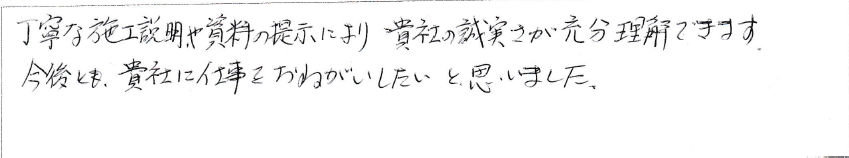 丁寧な施工説明や資料の提示により 貴社の誠実さが充分理解できます。
今後とも、貴社に仕事をおねがいしたいと思いました。